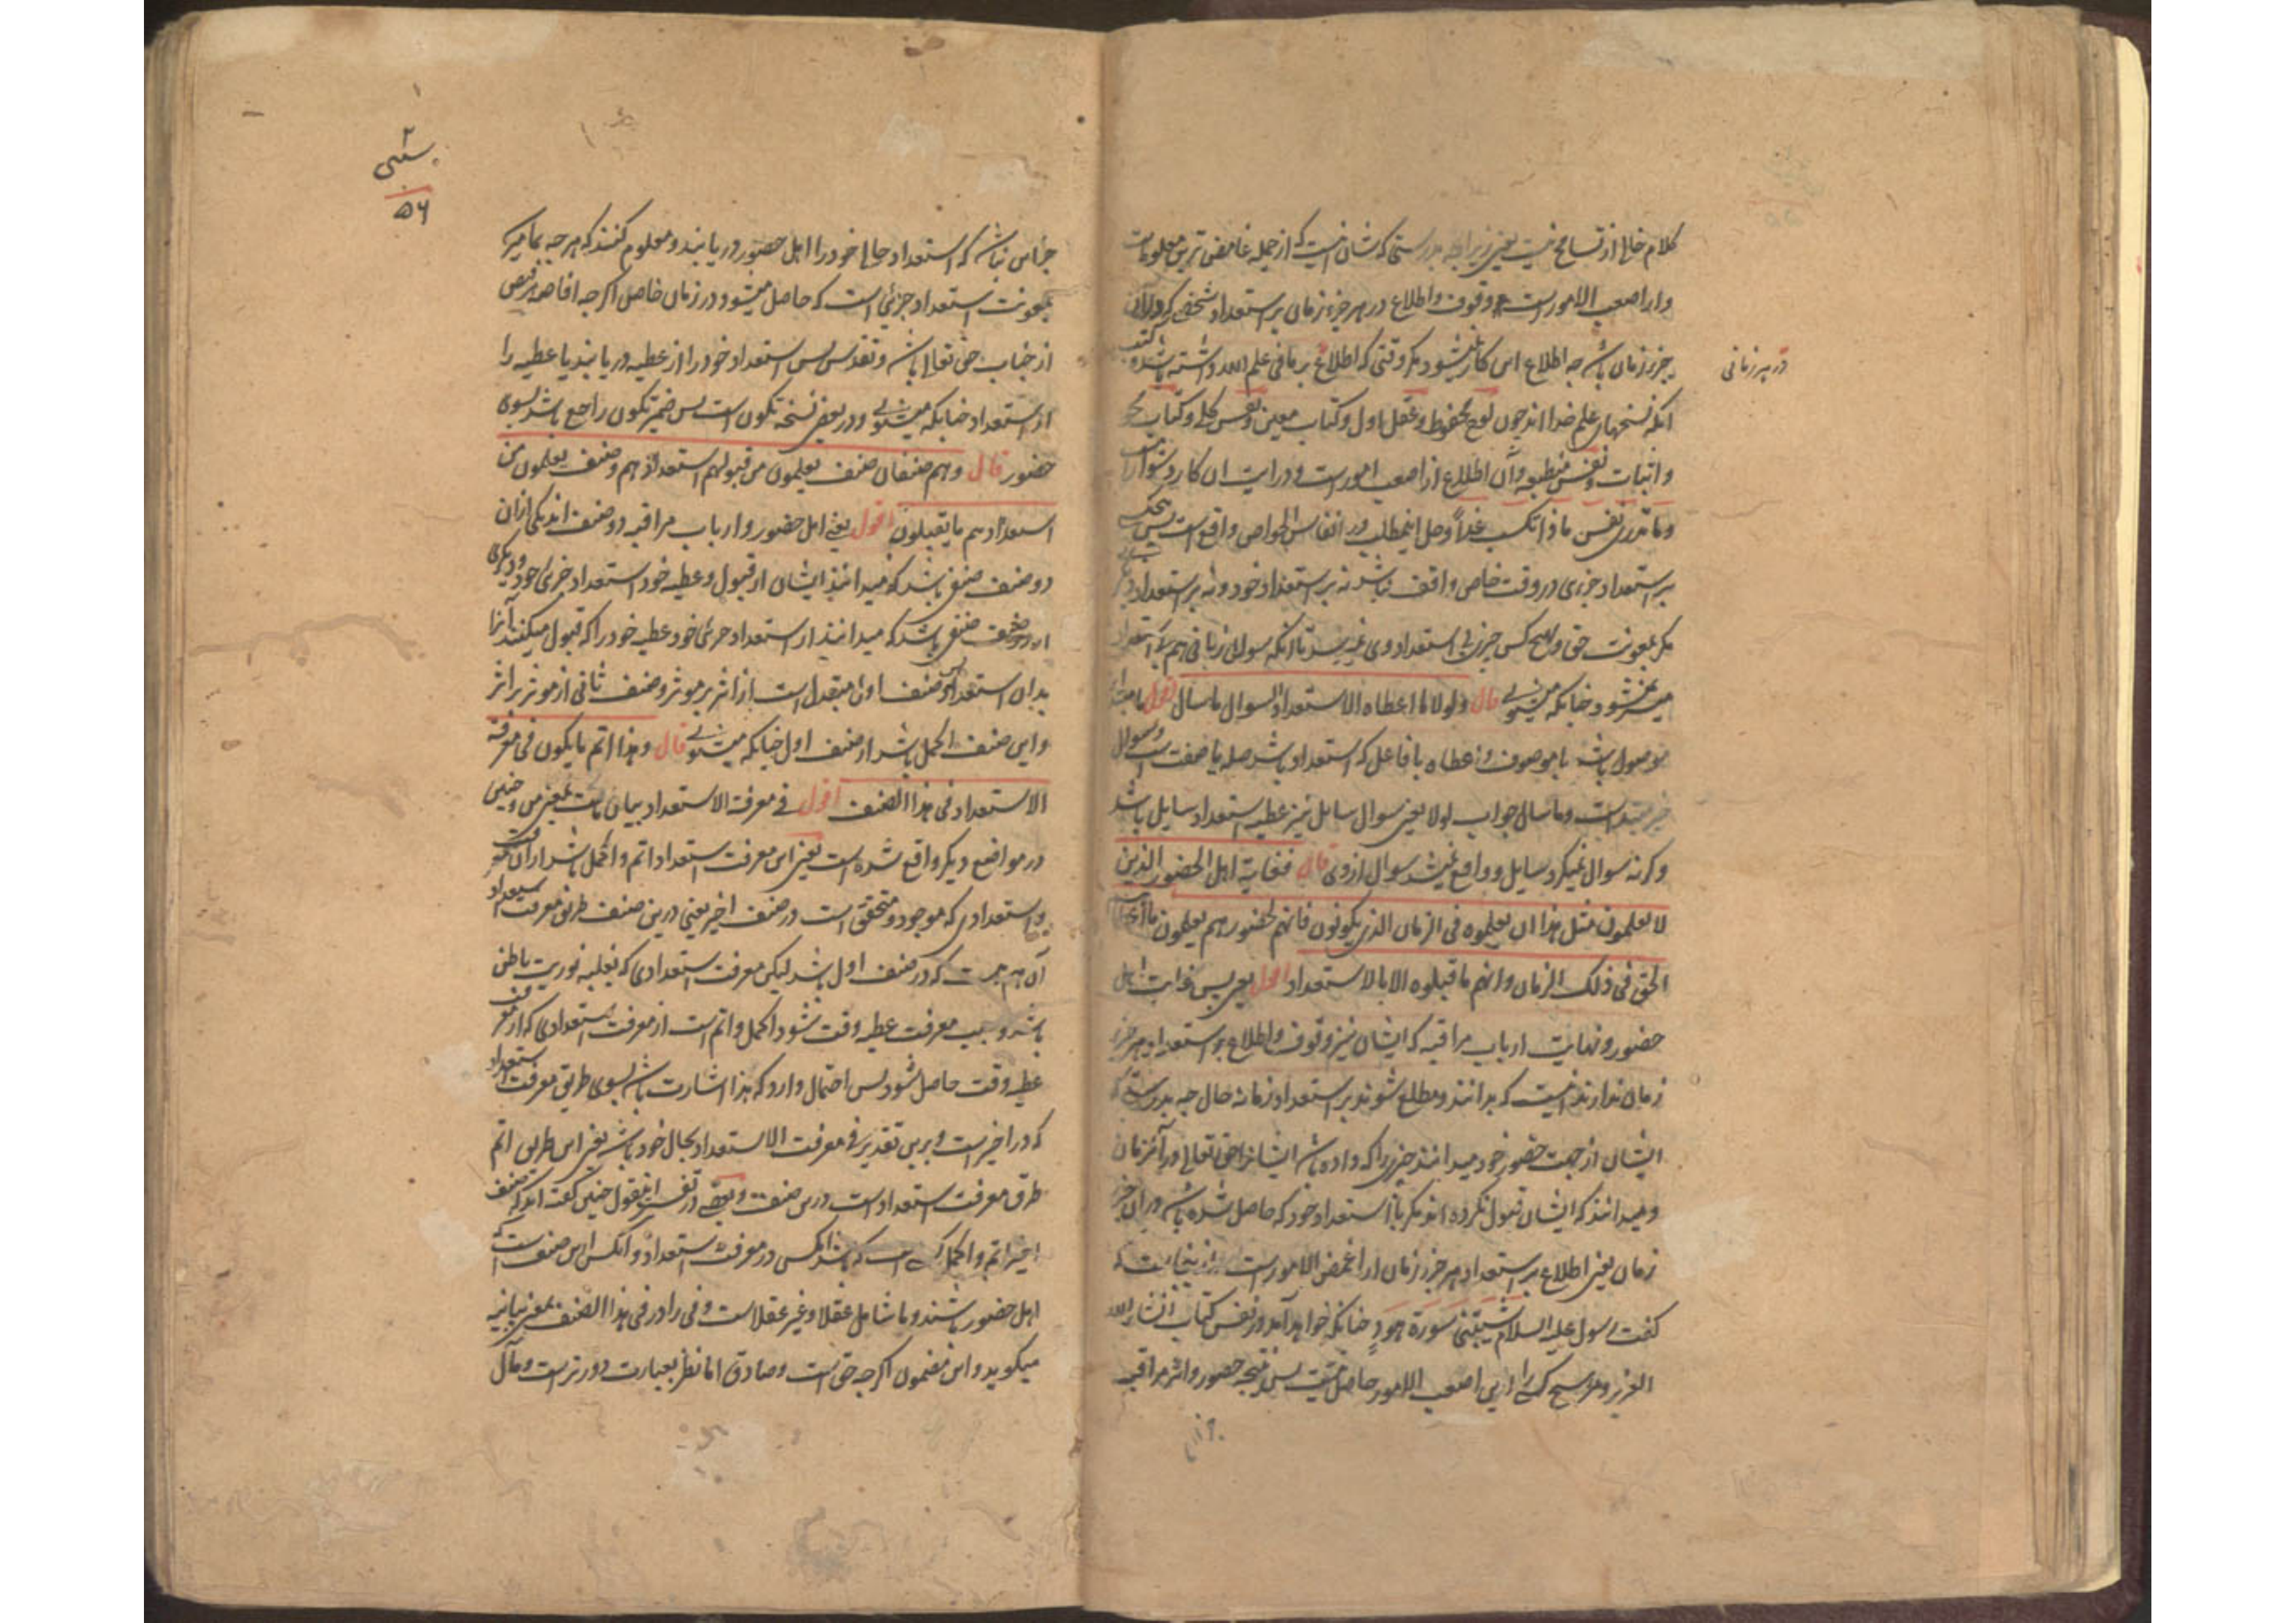 کلام خالی از تسامح نیست یعنی زیرا که بدرستی که شان اینست که از جمله غامض ترین معلومات
واز اصعب الامورست وقوف واطلاع در هر جزء زمان بر استعداد شخص که در آن
جزء زمان باشد چه اطلاع این کار نمیشود مگر وقتی که اطلاع بر ما فی علم الله داشته باشد
در هر زمانی
آنکه نسختهای علم خدا اند چون لوح محفوظ وعقل اول وکتاب مبین ونفس کلی وکتاب محو
واثبات ونفس منطبعه وآن اطلاع از اصعب امورست ودرایت آن کار دشوار
وما تدری نفس ماذا تکسب غداً وحل اینمطلب در انفاس الخواص واقع است پس
بر استعداد جزوی در وقت خاص واقف نباشد نه بر استعداد خود ونه بر استعداد دیگری
مگر بمعونت حق وهیچ کس چیزی بی استعداد وی نمیرسد تا آنکه سوال زبانی هم بی استعداد
میسر نمیشود چنانکه میشنوی قال ولولا ما اعطاه الاستعداد السوال ما سأل اقول ما مبتدا
موصول باشد یا موصوف واعطاه با فاعل که استعداد باشد صله یا صفت است وسوال
خبر مبتداست وما سأل جواب لولا یعنی سوال سایل نیز عطیه استعداد سایل باشد
وگرنه سوال نمیکرد سایل وواقع نمیشد سوال از وی قال فغایة اهل الحضور الذین
لا یعلمون مثل هذا ان یعلموه فی الزمان الذی یکونون فانهم لحضورهم یعلمون ما اعطاهم
الحق فی ذلک الزمان وانهم ما قبلوه الا بالاستعداد اقول یعنی پس غایت اهل
حضور ونهایت ارباب مراقبه که ایشان نیز وقوف واطلاع بر استعداد هر جزء
زمان ندارند اینست که بدانند ومطلع شوند بر استعداد زمانه حال چه بدرستی که
ایشان از جهت حضور خود میدانند چیزی را که داده باشد ایشانرا حق تعالی در آن زمان
ومیدانند که ایشان قبول نکرده اند مگر با استعداد خود که حاصل شده باشد در آن جزء
زمان یعنی اطلاع بر استعداد هر جزء زمان از اغمض الامورست
گفت رسول علیه السلام شیبتنی سورة هود چنانکه خواهد آمد در نفس کتاب انشاء الله
العزیز وهر هیچ کس را این اصعب الامور حاصل نیست پس نتیجه حضور واثر مراقبه
۵۶
جز این نباشد که استعداد حالی خود را اهل حضور دریابند ومعلوم کنند که هر چه بما میرسد
بمعونت استعداد جزئی است که حاصل میشود در زمان خاص اگرچه افاضه فیض
از جناب حق تعالی باشد وتقدس پس استعداد خود را از عطیه دریابند یا عطیه را
از استعداد چنانکه میشنوی ودر بعض نسخه تکون است پس ضمیر تکون راجع باشد بسوی
حضور قال وهم صنفان صنف یعلمون من قبولهم استعدادهم وصنف یعلمون من
استعدادهم ما یقبلون اقول یعنی اهل حضور وارباب مراقبه دو صنف اند یکی از آن
دو صنف صنفی باشد که میدانند ایشان از قبول وعطیه خود استعداد جزئی خود ودیگری
از دو صنف صنفی باشد که میدانند از استعداد جزئی خود عطیه خود را که قبول میکنند آنرا
بدان استعداد صنف اول مستدل است از اثر بر موثر وصنف ثانی از موثر بر اثر
واین صنف اکمل باشد از صنف اول چنانکه میشنوی قال وهذا اتم ما یکون فی معرفة
الاستعداد فی هذا الصنف اقول فی معرفت الاستعداد بیان ماست بمعنی من وچنین
در مواضع دیگر واقع شده است یعنی این معرفت استعداد اتم واکمل باشد از آن معرفت
استعدادی که موجود ومتحقق است در صنف اخیر یعنی درین صنف طریق معرفت استعداد
آن هم هست که در صنف اول باشد لیکن معرفت استعدادی که بغلبه نوریت باطن
باشد وسبب معرفت عطیه وقت شود اکمل واتم است از معرفت استعدادی که از معرفت
عطیه وقت حاصل شود پس احتمال دارد که هذا اشارت باشد بسوی طریق معرفت استعداد
که در اخیر است وبرین تقدیر فی معرفت الاستعداد بحال خود باشد یعنی این طریق اتم
طرق معرفت استعداد است درین صنف وبعضی در تفسیر اینقول چنین گفته اند که صنف
اخیر اتم واکمل کسی است که باشد آنکس در معرفت استعداد وآنکس این صنف است که
اهل حضور باشند وما شامل عقلا وغیر عقلاست وفی را در فی هذا الصنف بمعنی بیانیه
میگوید واین مضمون اگرچه حق است وصادق اما نظر بعبارت دورترست ومآل